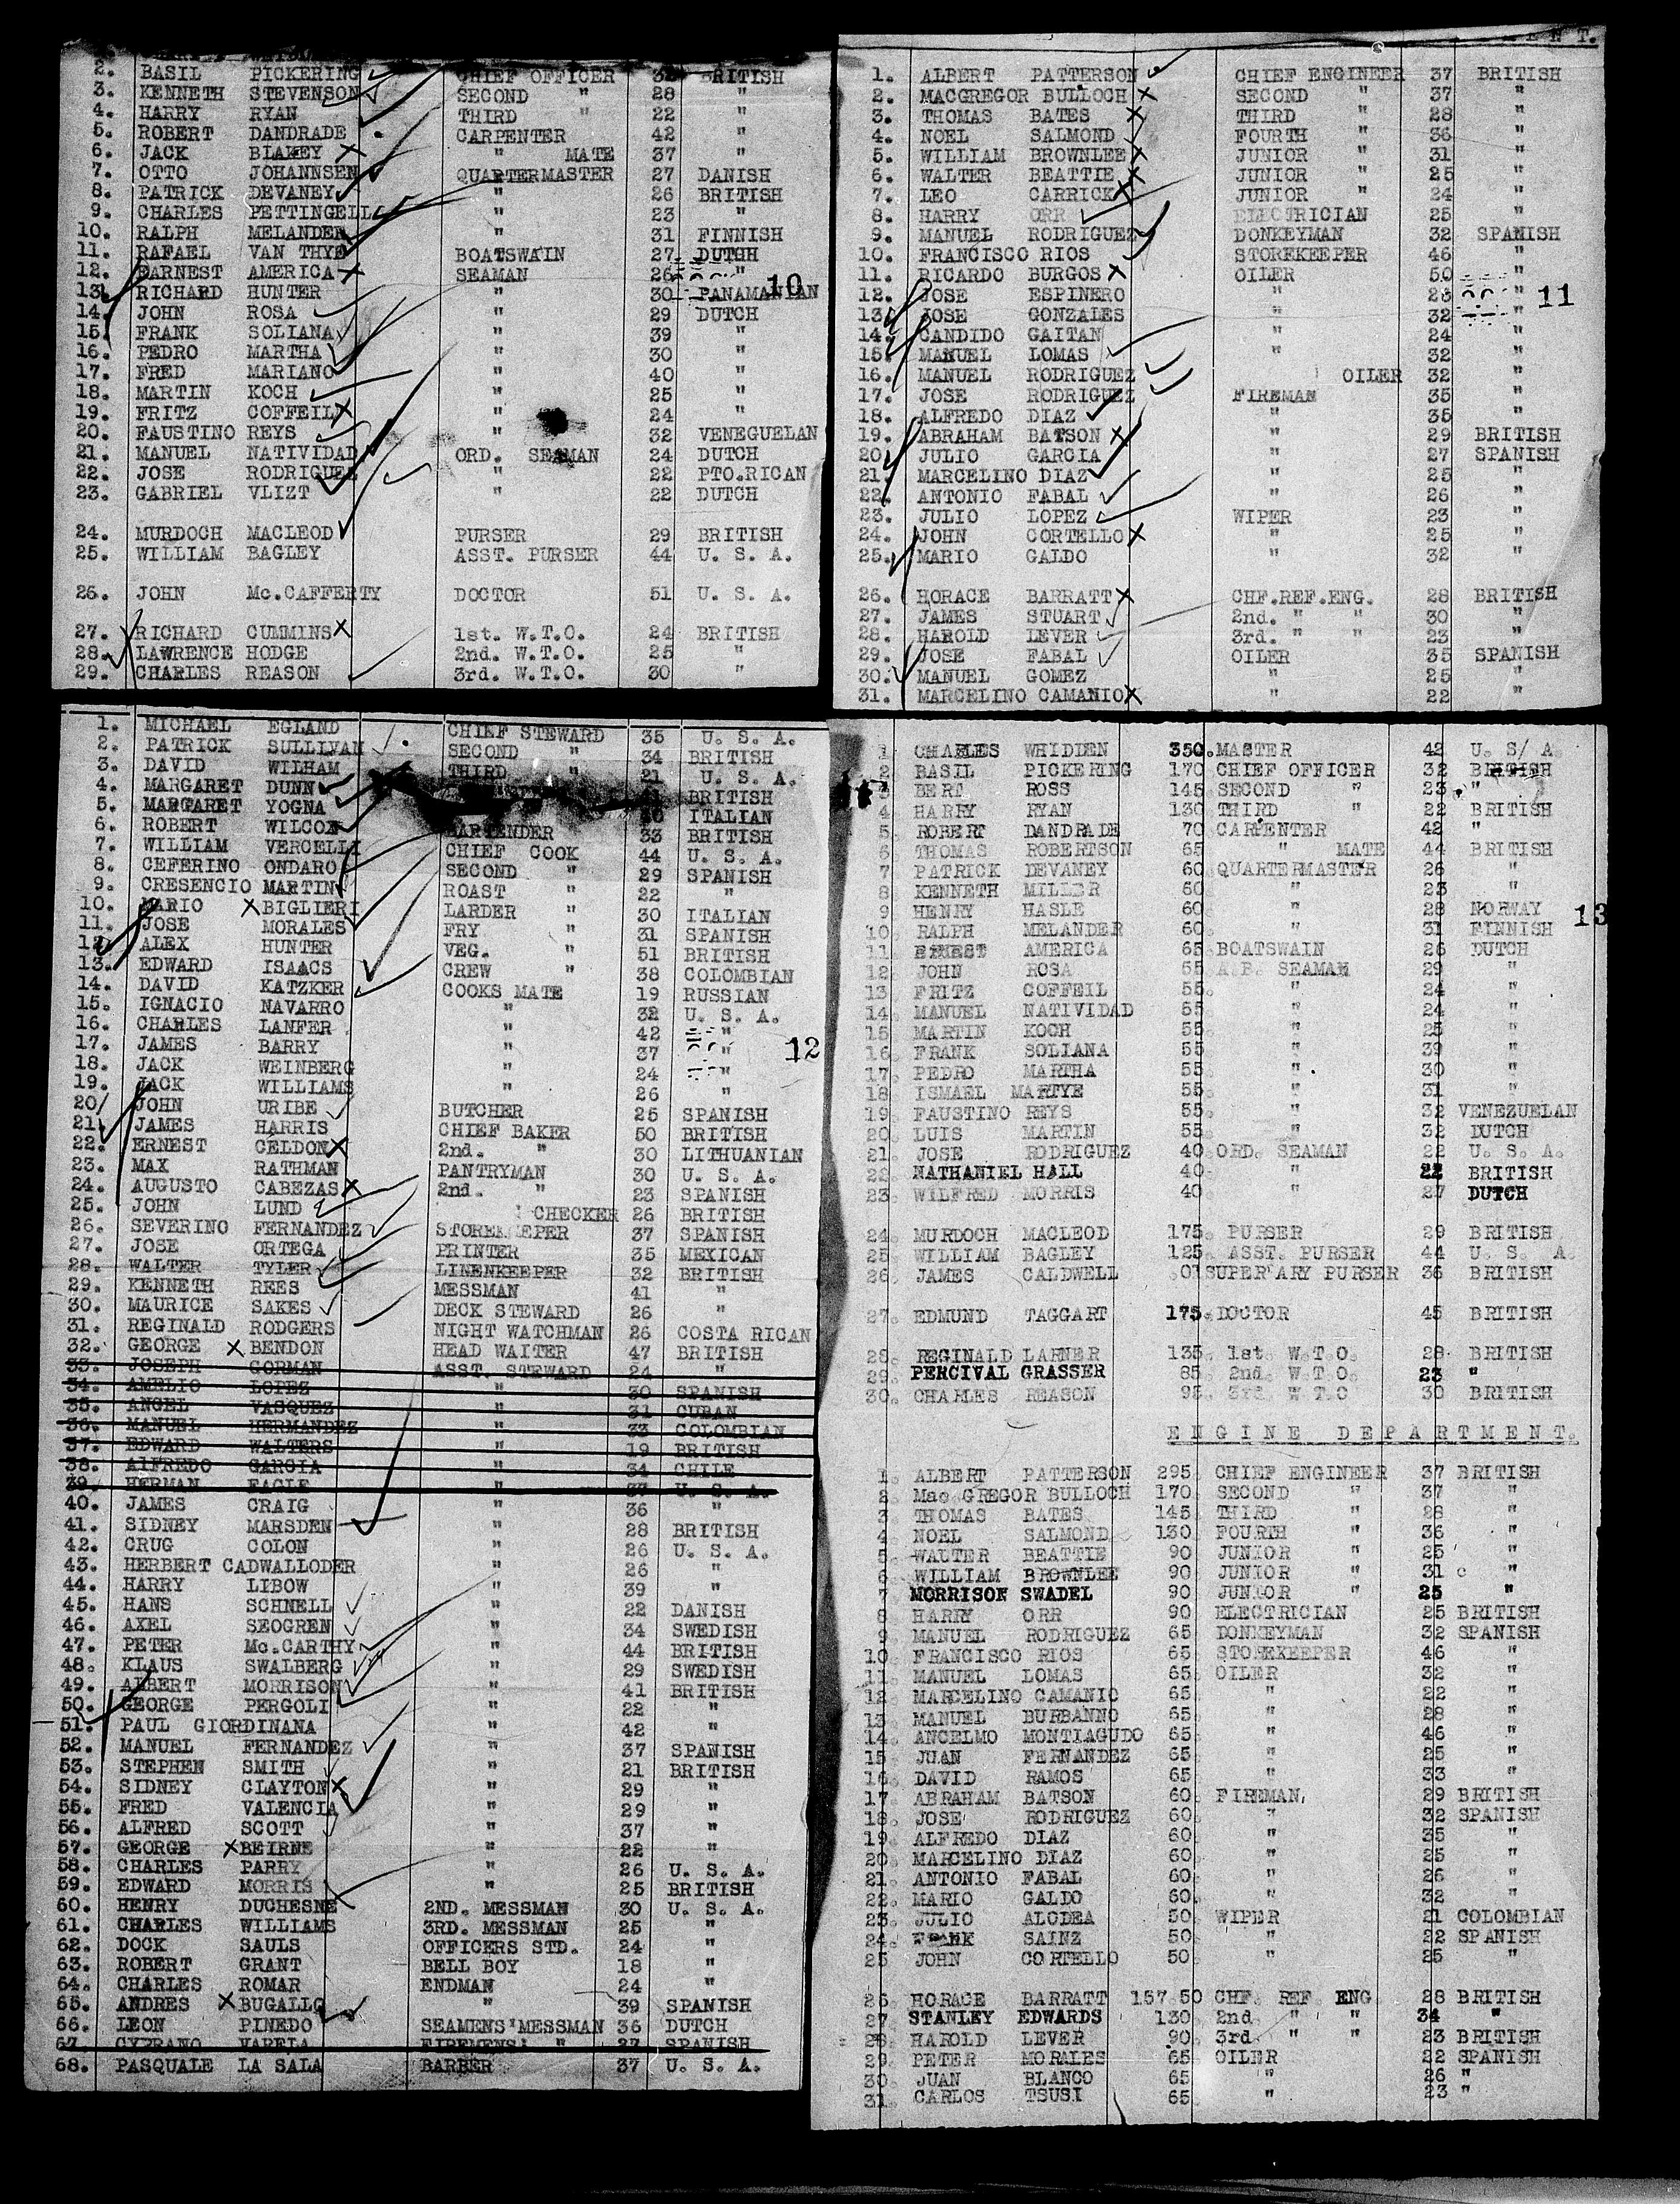 2. BASIL PICKERING CHIEF OFFICER 32 BRITISH
3. KENNETH STEVENSON SECOND " 28 "
4. HARRY RYAN THIRD " 22 "
5. ROBERT DANDRADE CARPENTER 42 "
6. JACK BLAKEY " MATE 37 "
7. OTTO JOHANNSEN QUARTERMASTER 27 DANISH
8. PATRICK DEVANEY " 26 BRITISH
9. CHARLES PETTINGELL " 23 "
10. RALPH MELANDER " 31 FINNISH
11. RAFAEL VAN THYE BOATSWAIN 27 DUTCH
12. EARNEST AMERICA SEAMAN 26 "
10
13. RICHARD HUNTER " 30 PANAMANIAN
14. JOHN ROSA " 29 DUTCH
15. FRANK SOLIANA " 39 "
16. PEDRO MARTHA " 30 "
17. FRED MARIANO " 40 "
18. MARTIN KOCH " 25 "
19. FRITZ COFFEIL " 24 "
20. FAUSTINO REYS " 32 VENEGUELAN
21. MANUEL NATIVIDAD ORD. SEAMAN 24 DUTCH
22. JOSE RODRIGUEZ " 22 PTO.RICAN
23. GABRIEL VLIZT " 22 DUTCH
24. MURDOCH MACLEOD PURSER 29 BRITISH
25. WILLIAM BAGLEY ASST. PURSER 44 U. S. A.
26. JOHN Mc.CAFFERTY DOCTOR 51 U. S. A.
27. RICHARD CUMMINS 1st. W.T.O. 24 BRITISH
28. LAWRENCE HODGE 2nd. W.T.O. 25 "
29. CHARLES REASON 3rd. W.T.O. 30 "
1. ALBERT PATTERSON CHIEF ENGINEER 37 BRITISH
2. MACGREGOR BULLOCH SECOND " 37 "
3. THOMAS BATES THIRD " 28 "
4. NOEL SALMOND FOURTH " 36 "
5. WILLIAM BROWNLEE JUNIOR " 31 "
6. WALTER BEATTIE JUNIOR " 25 "
7. LEO CARRICK JUNIOR " 24 "
8. HARRY ORR ELECTRICIAN 25 "
9. MANUEL RODRIGUEZ DONKEYMAN 32 SPANISH
10. FRANCISCO RIOS STOREKEEPER 46 "
11. RICARDO BURGOS OILER 50 "
12. JOSE ESPINERO " 23 "
11
13. JOSE GONZALES " 32 "
14. CANDIDO GAITAN " 24 "
15. MANUEL LOMAS " 32 "
16. MANUEL RODRIGUEZ OILER 32 "
17. JOSE RODRIGUEZ FIREMAN 35 "
18. ALFREDO DIAZ " 35 "
19. ABRAHAM BATSON " 29 BRITISH
20. JULIO GARCIA " 27 SPANISH
21. MARCELINO DIAZ " 25 "
22. ANTONIO FABAL " 26 "
23. JULIO LOPEZ WIPER 23 "
24. JOHN CORTELLO " 25 "
25. MARIO GALDO " 32 "
26. HORACE BARRATT CHF.REF.ENG. 28 BRITISH
27. JAMES STUART 2nd. " " 30 "
28. HAROLD LEVER 3rd. " " 23 "
29. JOSE FABAL OILER 35 SPANISH
30. MANUEL GOMEZ " 25 "
31. MARCELINO CAMANIO " 22 "
1. MICHAEL EGLAND CHIEF STEWARD 35 U. S. A.
2. PATRICK SULLIVAN SECOND " 34 BRITISH
3. DAVID WILHAM THIRD " 21 U. S. A.
4. MARGARET DUNN BRITISH
5. MARGARET YOGNA ITALIAN
6. ROBERT WILCOX BARTENDER 33 BRITISH
7. WILLIAM VERCELLI CHIEF COOK 44 U. S. A.
8. CEFERINO ONDARO SECOND " 29 SPANISH
9. CRESENCIO MARTIN ROAST " 22 "
10. MARIO BIGLIERI LARDER " 30 ITALIAN
11. JOSE MORALES FRY " 31 SPANISH
12. ALEX HUNTER VEG. " 51 BRITISH
13. EDWARD ISAACS CREW " 38 COLOMBIAN
14. DAVID KATZKER COOKS MATE 19 RUSSIAN
15. IGNACIO NAVARRO " 32 U. S. A.
16. CHARLES LANFER " 42 "
17. JAMES BARRY " 37 "
12
18. JACK WEINBERG " 24 "
19. JACK WILLIAMS " 26 "
20/ JOHN URIBE BUTCHER 25 SPANISH
21. JAMES HARRIS CHIEF BAKER 50 BRITISH
22. ERNEST CELDON 2nd. " 30 LITHUANIAN
23. MAX RATHMAN PANTRYMAN 30 U. S. A.
24. AUGUSTO CABEZAS 2nd. " 23 SPANISH
25. JOHN LUND CHECKER 26 BRITISH
26. SEVERINO FERNANDEZ STOREKEEPER 37 SPANISH
27. JOSE ORTEGA PRINTER 35 MEXICAN
28. WALTER TYLER LINENKEEPER 32 BRITISH
29. KENNETH REES MESSMAN 41 "
30. MAURICE SAKES DECK STEWARD 26 "
31. REGINALD RODGERS NIGHT WATCHMAN 26 COSTA RICAN
32. GEORGE BENDON HEAD WAITER 47 BRITISH
33. JOSEPH GORMAN ASST. STEWARD 24 "
34. AMELIO LOPEZ " 30 SPANISH
35. ANGEL VASQUEZ " 31 CUBAN
36. MANUEL HERMANDEZ " 33 COLOMBIAN
37. EDWARD WALTERS " 19 BRITISH
38. AlFREDO GARCIA " 34 CHILE
39. HERMAN EAGLE " 37 U. S. A.
40. JAMES CRAIG " 36 "
41. SIDNEY MARSDEN " 28 BRITISH
42. CRUG COLON " 26 U. S. A.
43. HERBERT CADWALLODER " 26 "
44. HARRY LIBOW " 39 "
45. HANS SCHNELL " 22 DANISH
46. AXEL SEOGREN " 34 SWEDISH
47. PETER Mc.CARTHY " 44 BRITISH
48. KLAUS SWALBERG " 29 SWEDISH
49. ALBERT MORRISON " 41 BRITISH
50. GEORGE PERGOLI " 22 "
51. PAUL GIORDINANA " 42 "
52. MANUEL FERNANDEZ " 37 SPANISH
53. STEPHEN SMITH " 21 BRITISH
54. SIDNEY CLAYTON " 29 "
55. FRED VALENCIA " 29 "
56. ALFRED SCOTT " 37 "
57. GEORGE BEIRNE " 22 "
58. CHARLES PARRY " 26 U. S. A.
59. EDWARD MORRIS " 25 BRITISH
60. HENRY DUCHESNE 2ND. MESSMAN 30 U. S. A.
61. CHARLES WILLIAMS 3RD. MESSMAN 25 "
62. DOCK SAULS OFFICERS STD. 24 "
63. ROBERT GRANT BELL BOY 18 "
64. CHARLES ROMAR ENDMAN 24 "
65. ANDRES BUGALLO " 39 SPANISH
66. LEON PINEDO SEAMENS'MESSMAN 36 DUTCH
67. CYPRANO VARELA FIREMENS' " 27 SPANISH
68. PASQUALE LA SALA BARBER 37 U. S. A.
1 CHARLES WHIDDEN 350. MASTER 42 U. S/ A
2 BASIL PICKERING 170 CHIEF OFFICER 32 BRITISH
3 BERT ROSS 145 SECOND " 23 "
4 HARRY RYAN 130 THIRD " 22 BRITISH
5. ROBERT DANDRADE 70 CARPENTER 42 "
6 THOMAS ROBERTSON 65 " MATE 44 BRITISH
7 PATRICK DEVANEY 60 QUARTERMASTER 26 "
8 KENNETH MILLER 60 " 23 "
9 HENRY HASLE 60 " 28 NORWAY
13
10. RALPH MELANDER 60. " 31 FINNISH
11 ERNEST AMERICA 65 BOATSWAIN 26 DUTCH
12 JOHN ROSA 55 A.B. SEAMAN 29 "
13 FRITZ COFFEIL 55. " 24 "
14 MANUEL NATIVIDAD 55 " 24 "
15 MARTIN KOCH 55. " 25 "
16. FRANK SOLIANA 55 " 39 "
17. PEDRO MARTHA 55. " 30 "
18 ISMAEL MARTYE 55. " 31 "
19. FAUSTINO REYS 55. " 32 VENEZUELAN
20. LUIS MARTIN 55 " 32 DUTCH
21. JOSE RODRIGUEZ 40. ORD. SEAMAN 22 U. S. A.
22 NATHANIEL HALL 40 " 22 BRITISH
23. WILFRED MORRIS 40 " 27 DUTCH
24. MURDOCH MACLEOD 175. PURSER 29 BRITISH
25. WILLIAM BAGLEY 125. ASST. PURSER 44 U. S. A.
26. JAMES CALDWELL 01 SUPER'ARY PURSER 36 BRITISH
27. EDMUND TAGGART 175. DOCTOR 45 BRITISH
28. REGINALD LARNER 135. 1st. W.T.O. 28 BRITISH
29. PERCIVAL GRASSER 85. 2nd. W.T.O. 23 "
30. CHARLES REASON 95. 3rd. W T.O 30 BRITISH
ENGINE DEPARTMENT.
1. ALBERT PATTERSON 295. CHIEF ENGINEER 37 BRITISH
2. Mac GREGOR BULLOCH 170. SECOND " 37 "
3 THOMAS BATES 145. THIRD " 28 "
4 NOEL SALMOND 130 FOURTH " 36 "
5. WALTER BEATTIE 90 JUNIOR " 25 "
6. WILLIAM BROWNLEE 90 JUNIOR " 31 "
7 MORRISON SWADEL 90 JUNIOR " 25 "
8 HARRY ORR 90 ELECTRICIAN 25 BRITISH
9. MANUEL RODRIGUEZ 65 DONKEYMAN 32 SPANISH
10. FRANCISCO RIOS 65 STOREKEEPER 46 "
11. MANUEL LOMAS 65. OILER 32 "
12 MARCELINO CAMANIO 65. " 22 "
13. MANUEL BURBANNO 65. " 28 "
14. ANCELMO MONTIAGUDO 65. " 46 "
15. JUAN FERNANDEZ 65. " 25 "
16. DAVID RAMOS 65 " 33 "
17. ABRAHAM BATSON 60. FIREMAN 29 BRITISH
18. JOSE RODRIGUEZ 60. " 32 SPANISH
19. ALFREDO DIAZ 60. " 35 "
20. MARCELINO DIAZ 60. " 25 "
21. ANTONIO FABAL 60. " 26 "
22. MARIO GALDO 60. " 32 "
23. JULIO ALCDEA 50. WIPER 21 COLOMBIAN
24. FRANK SAINZ 50. " 22 SPANISH
25 JOHN CORTELLO 50. " 25 "
26. HORACE BARRATT 157 50 CHF. REF. ENG. 28 BRITISH
27. STANLEY EDWARDS 130. 2nd. " " 34 "
28. HAROLD LEVER 90. 3rd. " " 23 BRITISH
29. PETER MORALES 65. OILER 22 SPANISH
30. JUAN BLANCO 65 " 26 "
31. CARLOS TSUSI 65. " 23 "